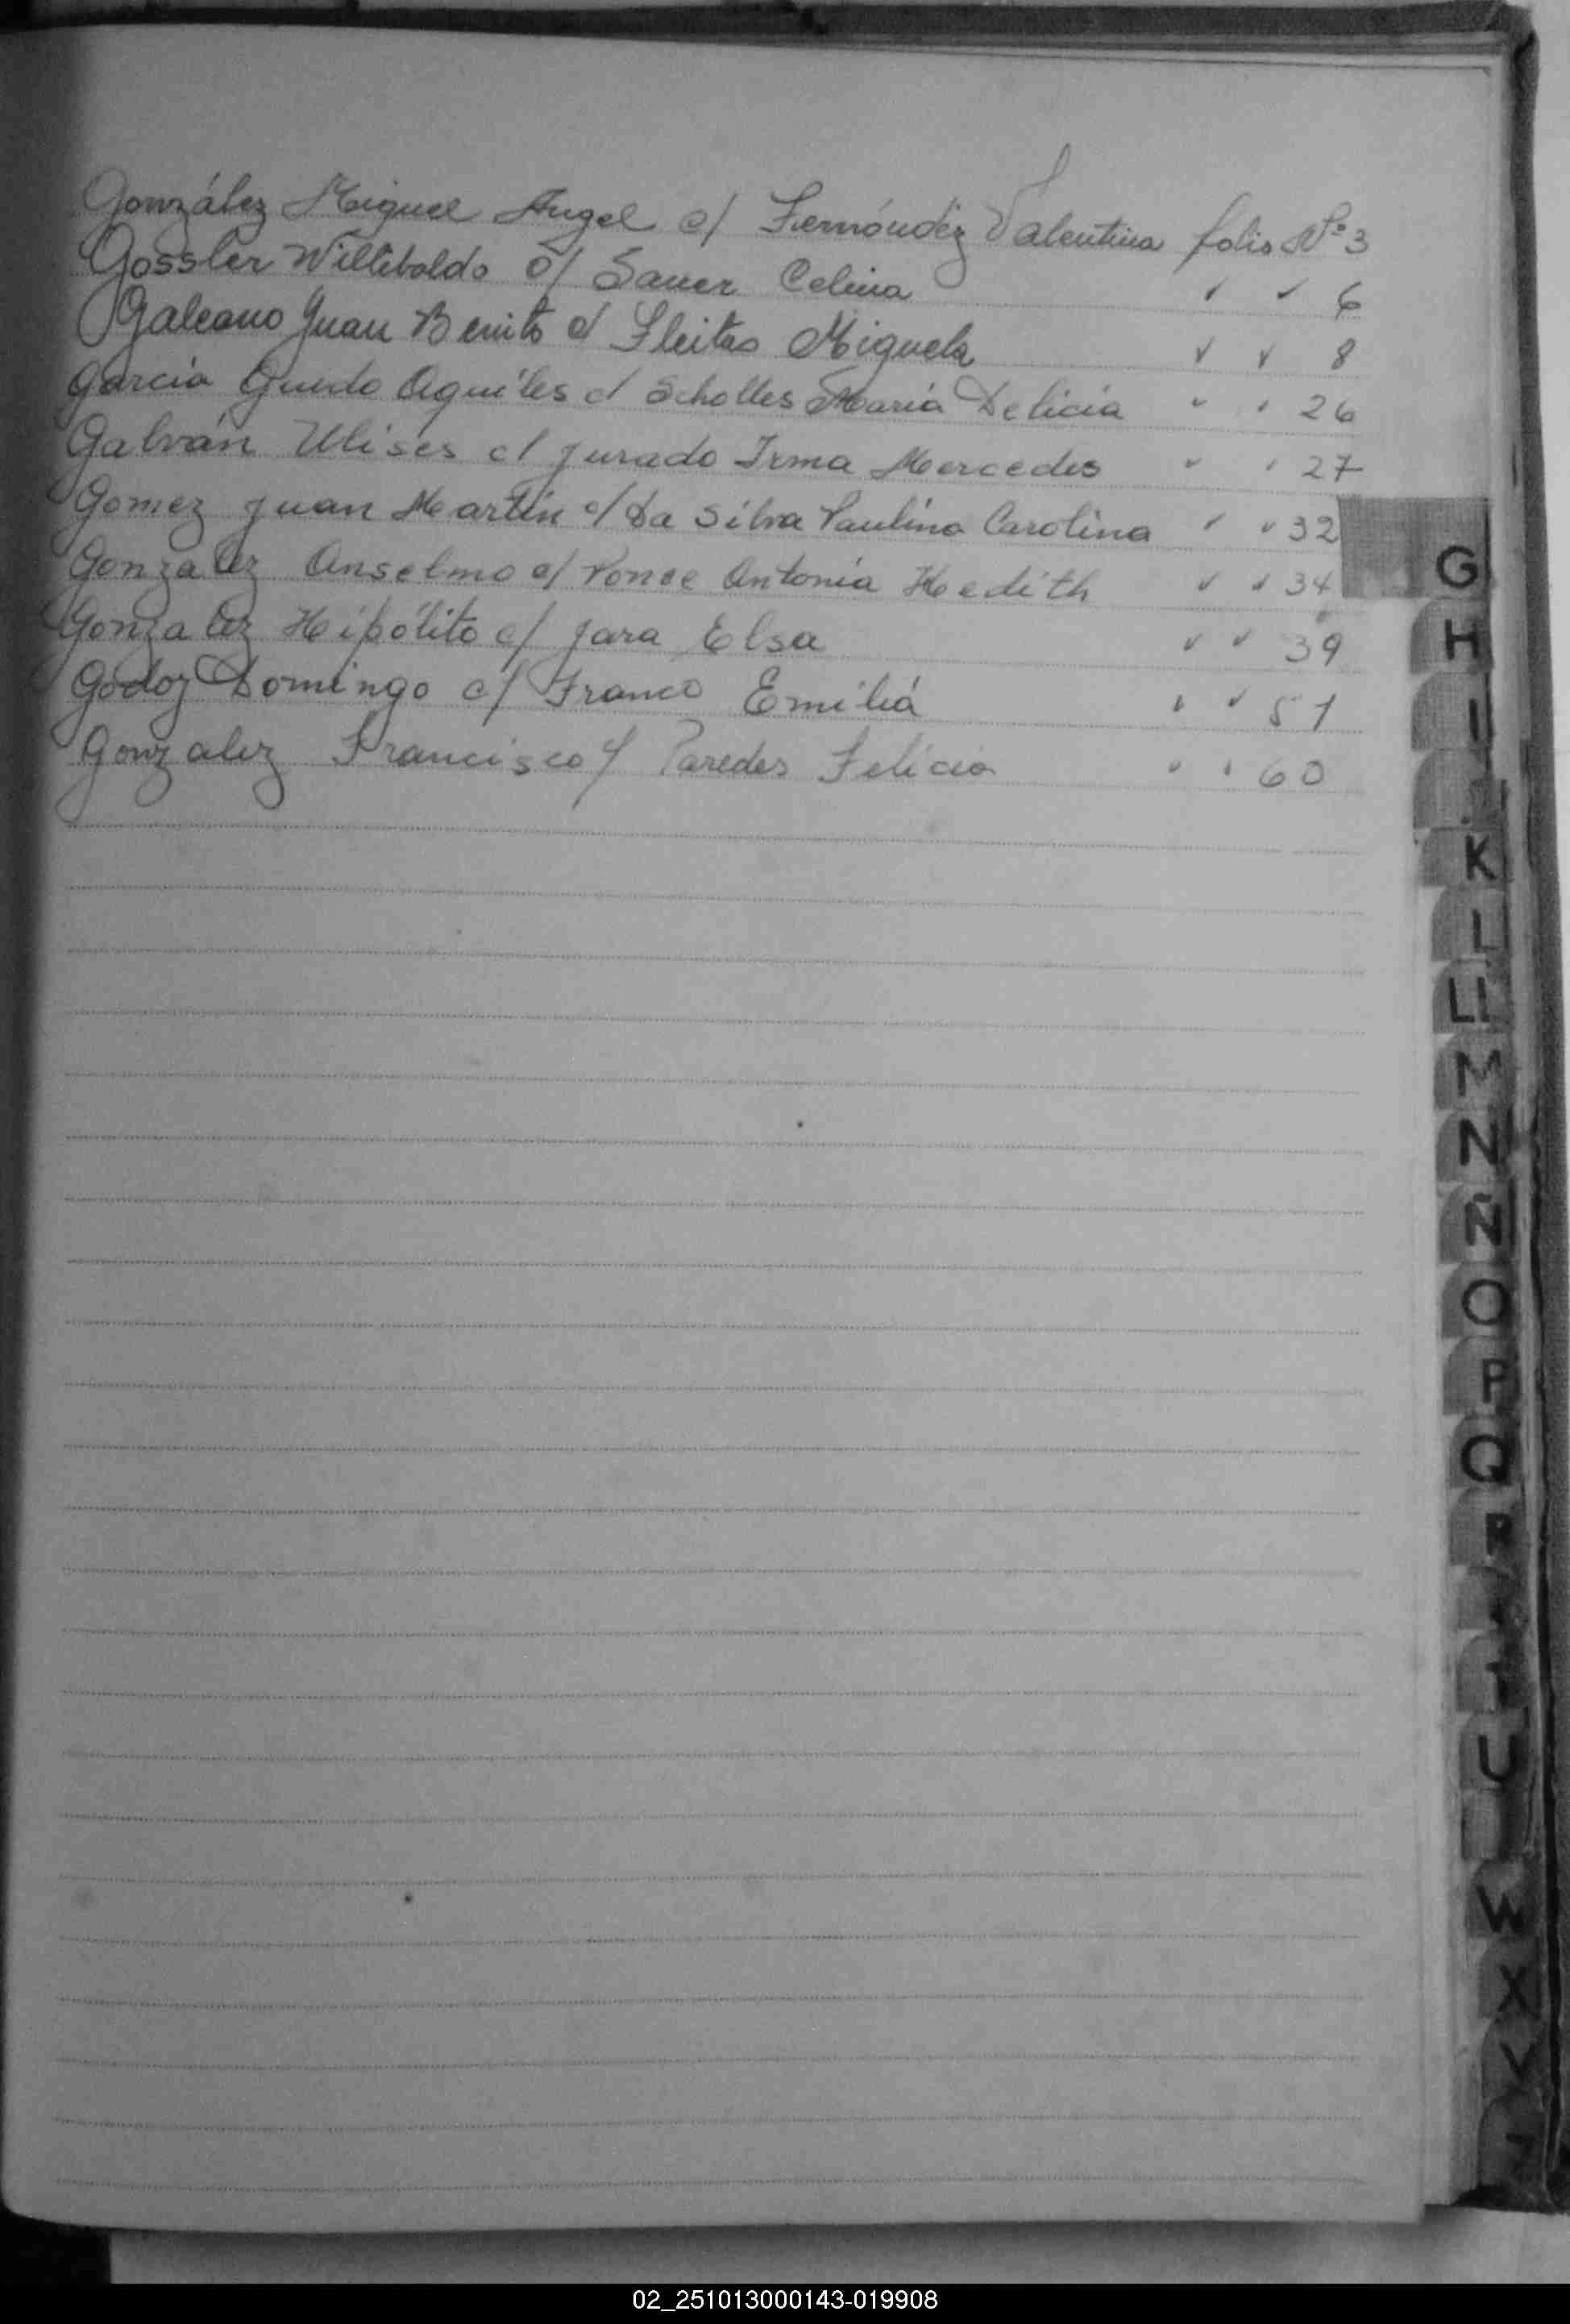 González Miguel Angel c/ Fernández Valentina folio Nº 3
Gossler Willibaldo c/ Sauer Celina " " 6
Galeano Juan Benito c/ Fleitas Miguela " " 8
Garcia Guido Aquiles c/ Scholles Maria Delicia " " 26
Galván Ulises c/ Jurado Irma Mercedes " " 27
Gomez Juan Martín c/ Da Silva Paulina Carolina " " 32
Gonzalez Anselmo c/ Ponce Antonia Hedith " " 34
Gonzalez Hipólito c/ Jara Elsa " " 39
Godoy Domingo c/ Franco Emiliá " " 51
Gonzalez Francisco c/ Paredes Felicia " " 60
G
H
I
J
K
L
LL
M
N
Ñ
O
P
Q
R
T
U
W
X
Y
Z
02_251013000143-019908